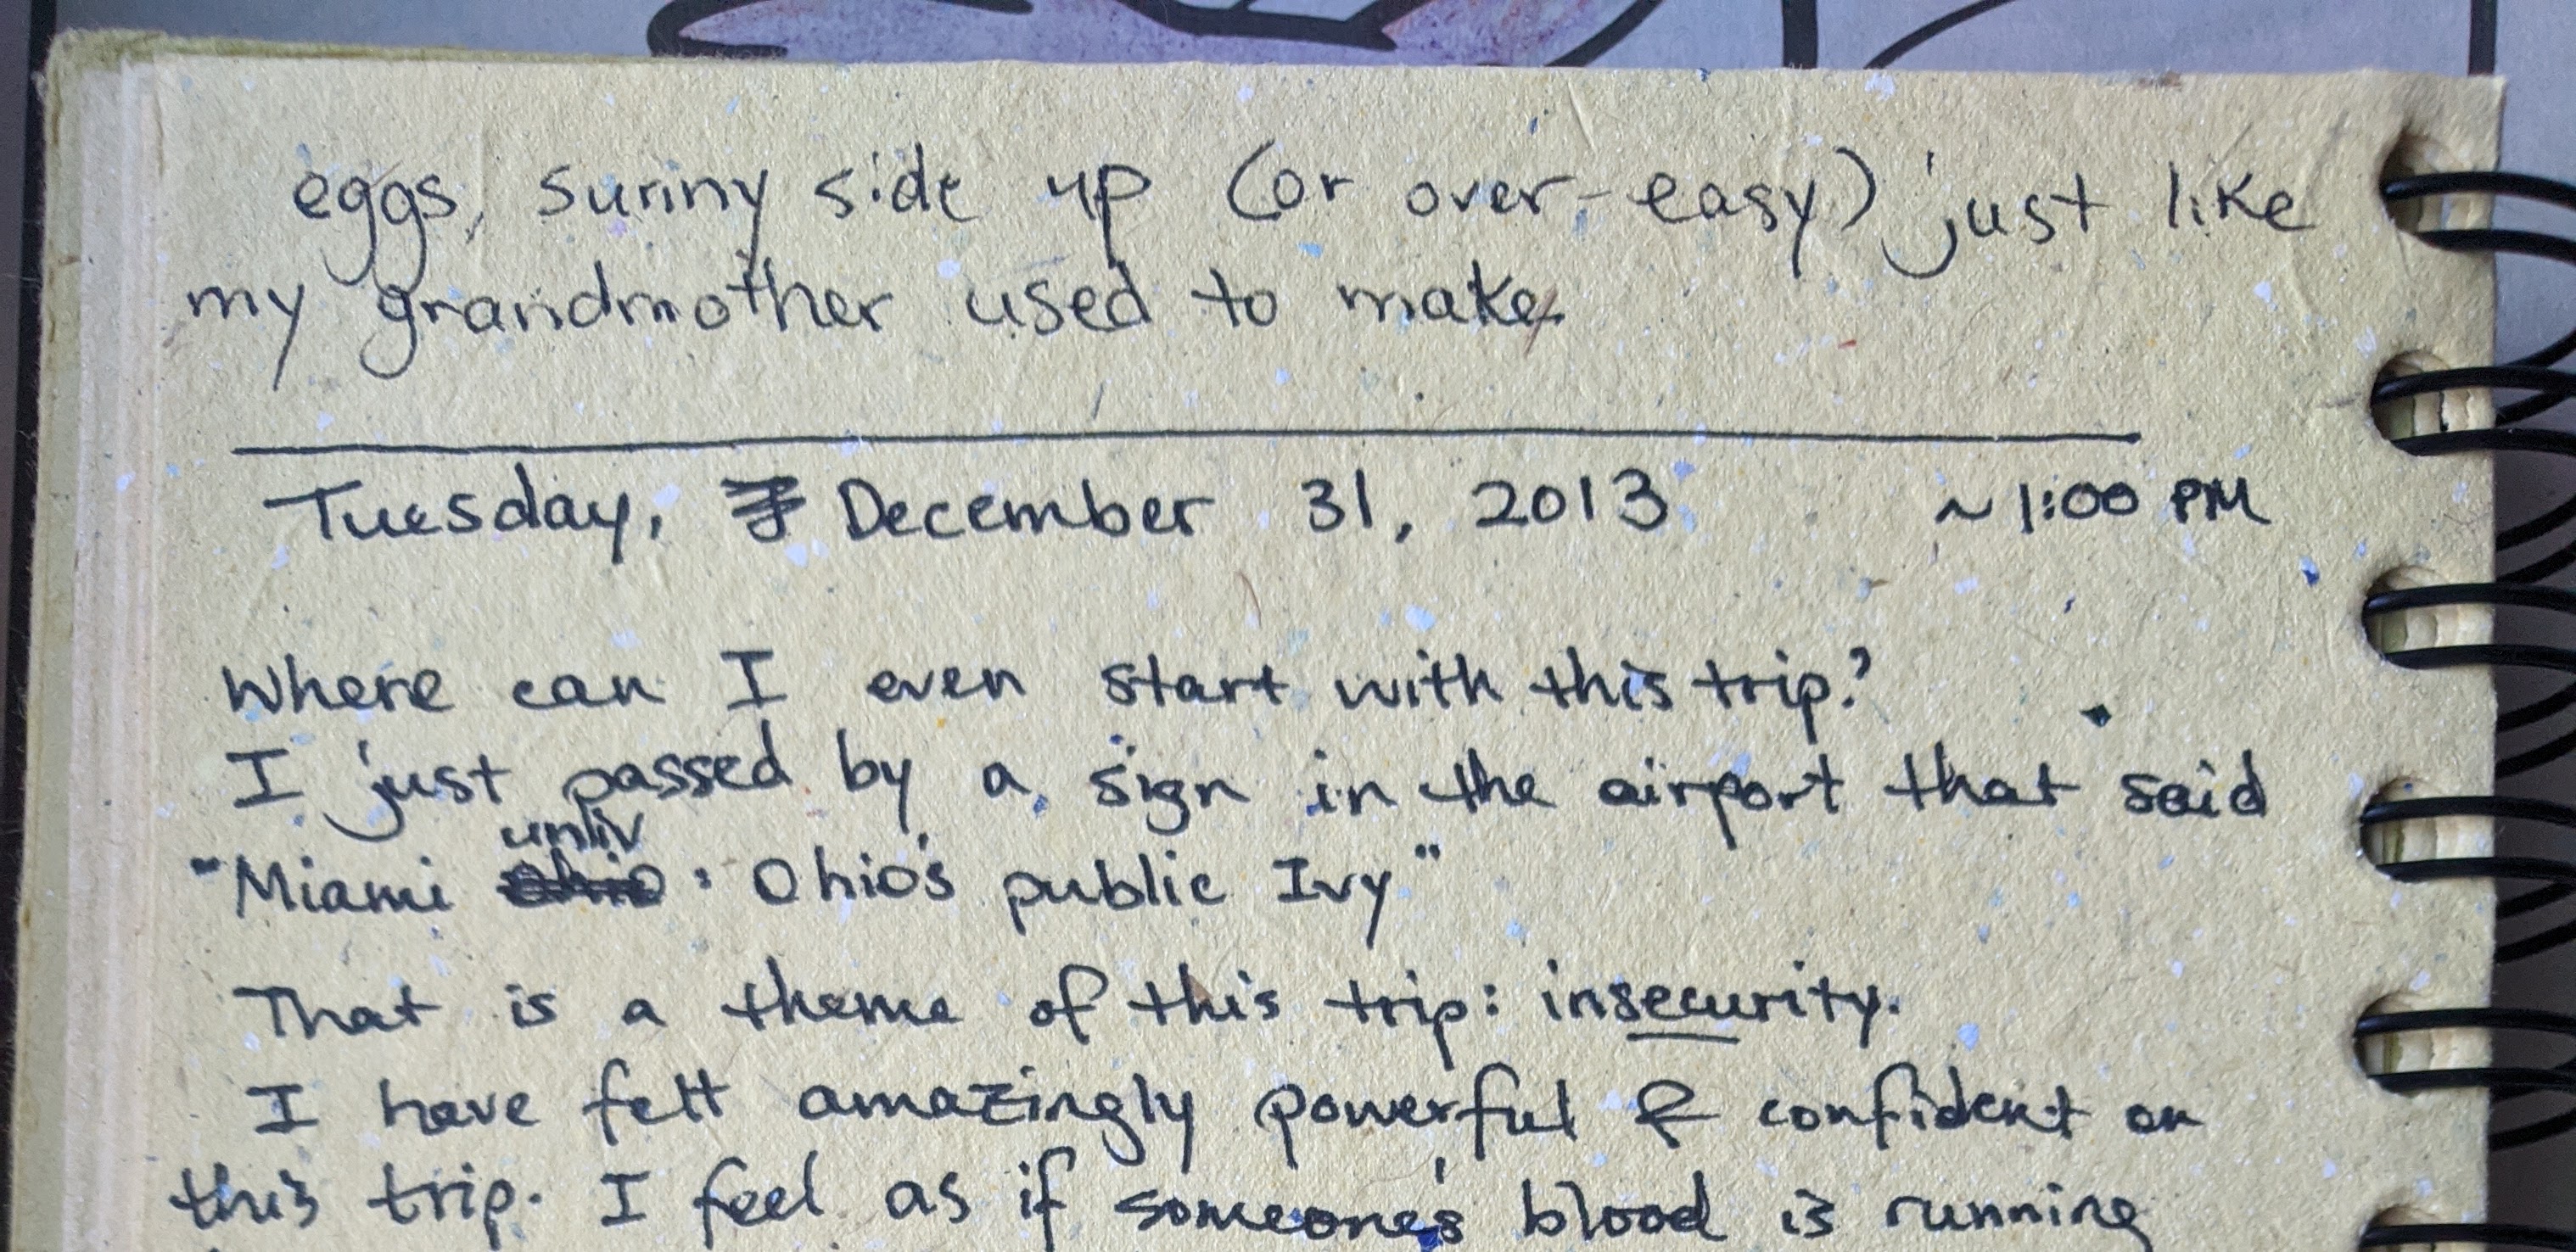 eggs, sunny side up (or over-easy) just like
my grandmother used to make
Tuesday, December 31, 2013 ~1:00 PM
Where can I even start with this trip?
I just passed by a sign in the airport that said
univ
"Miami Ohio: Ohio's public Ivy"
That is a theme of this trip: insecurity.
I have felt amazingly powerful & confident on
this trip. I feel as if someone's blood is running